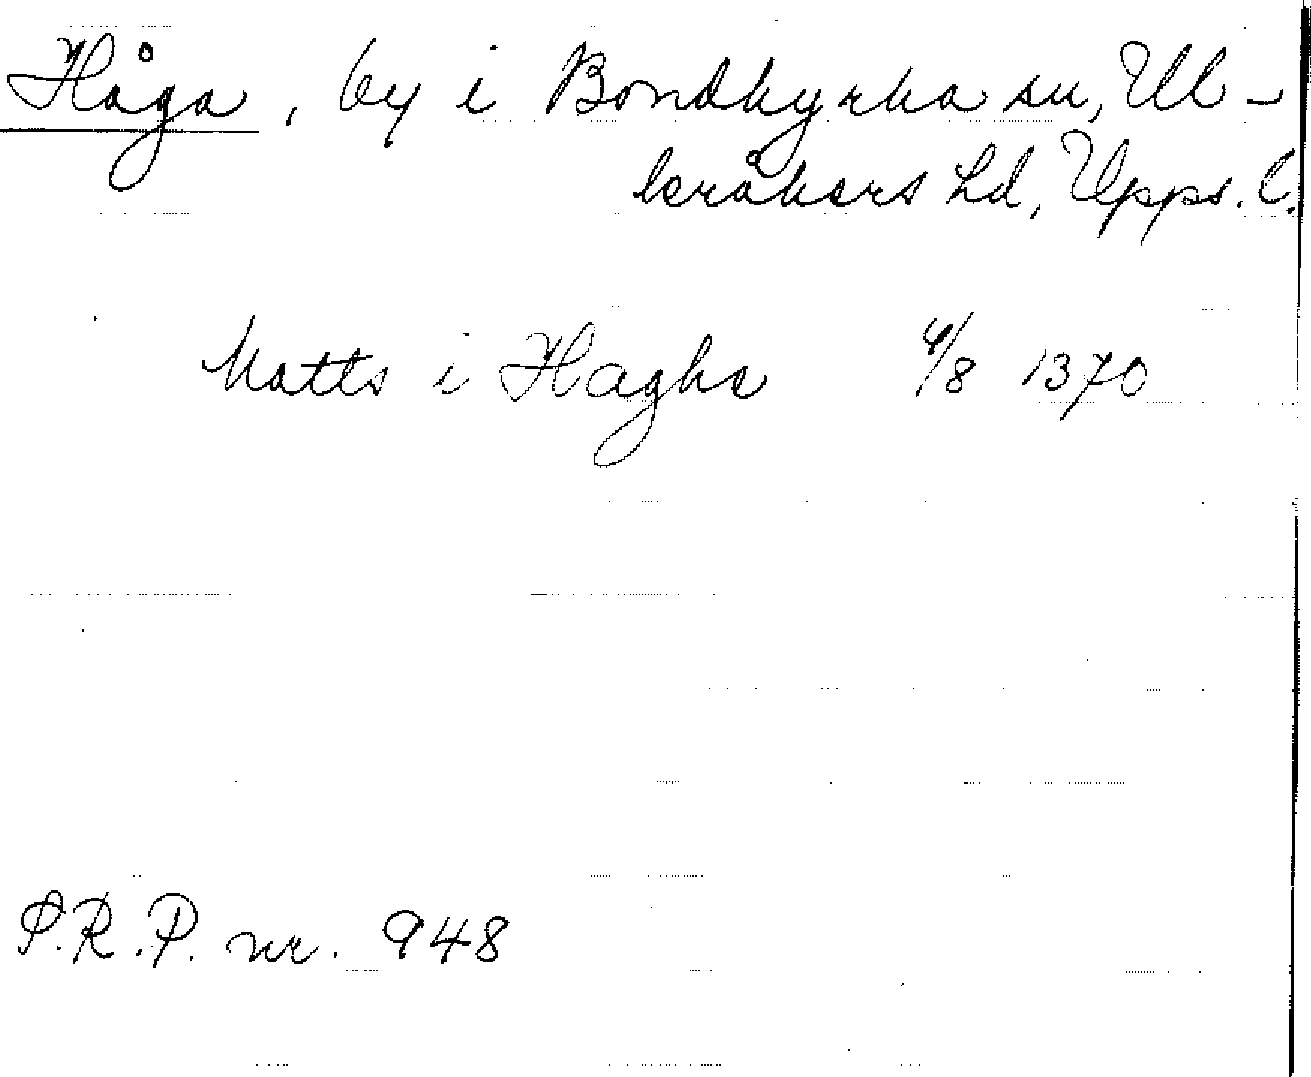 Håga, by i Bondkyrka sn, Ul-
leråkers hd, Upps. l.
Matts i Hagha 4/8 1370
S.R.P. nr. 948